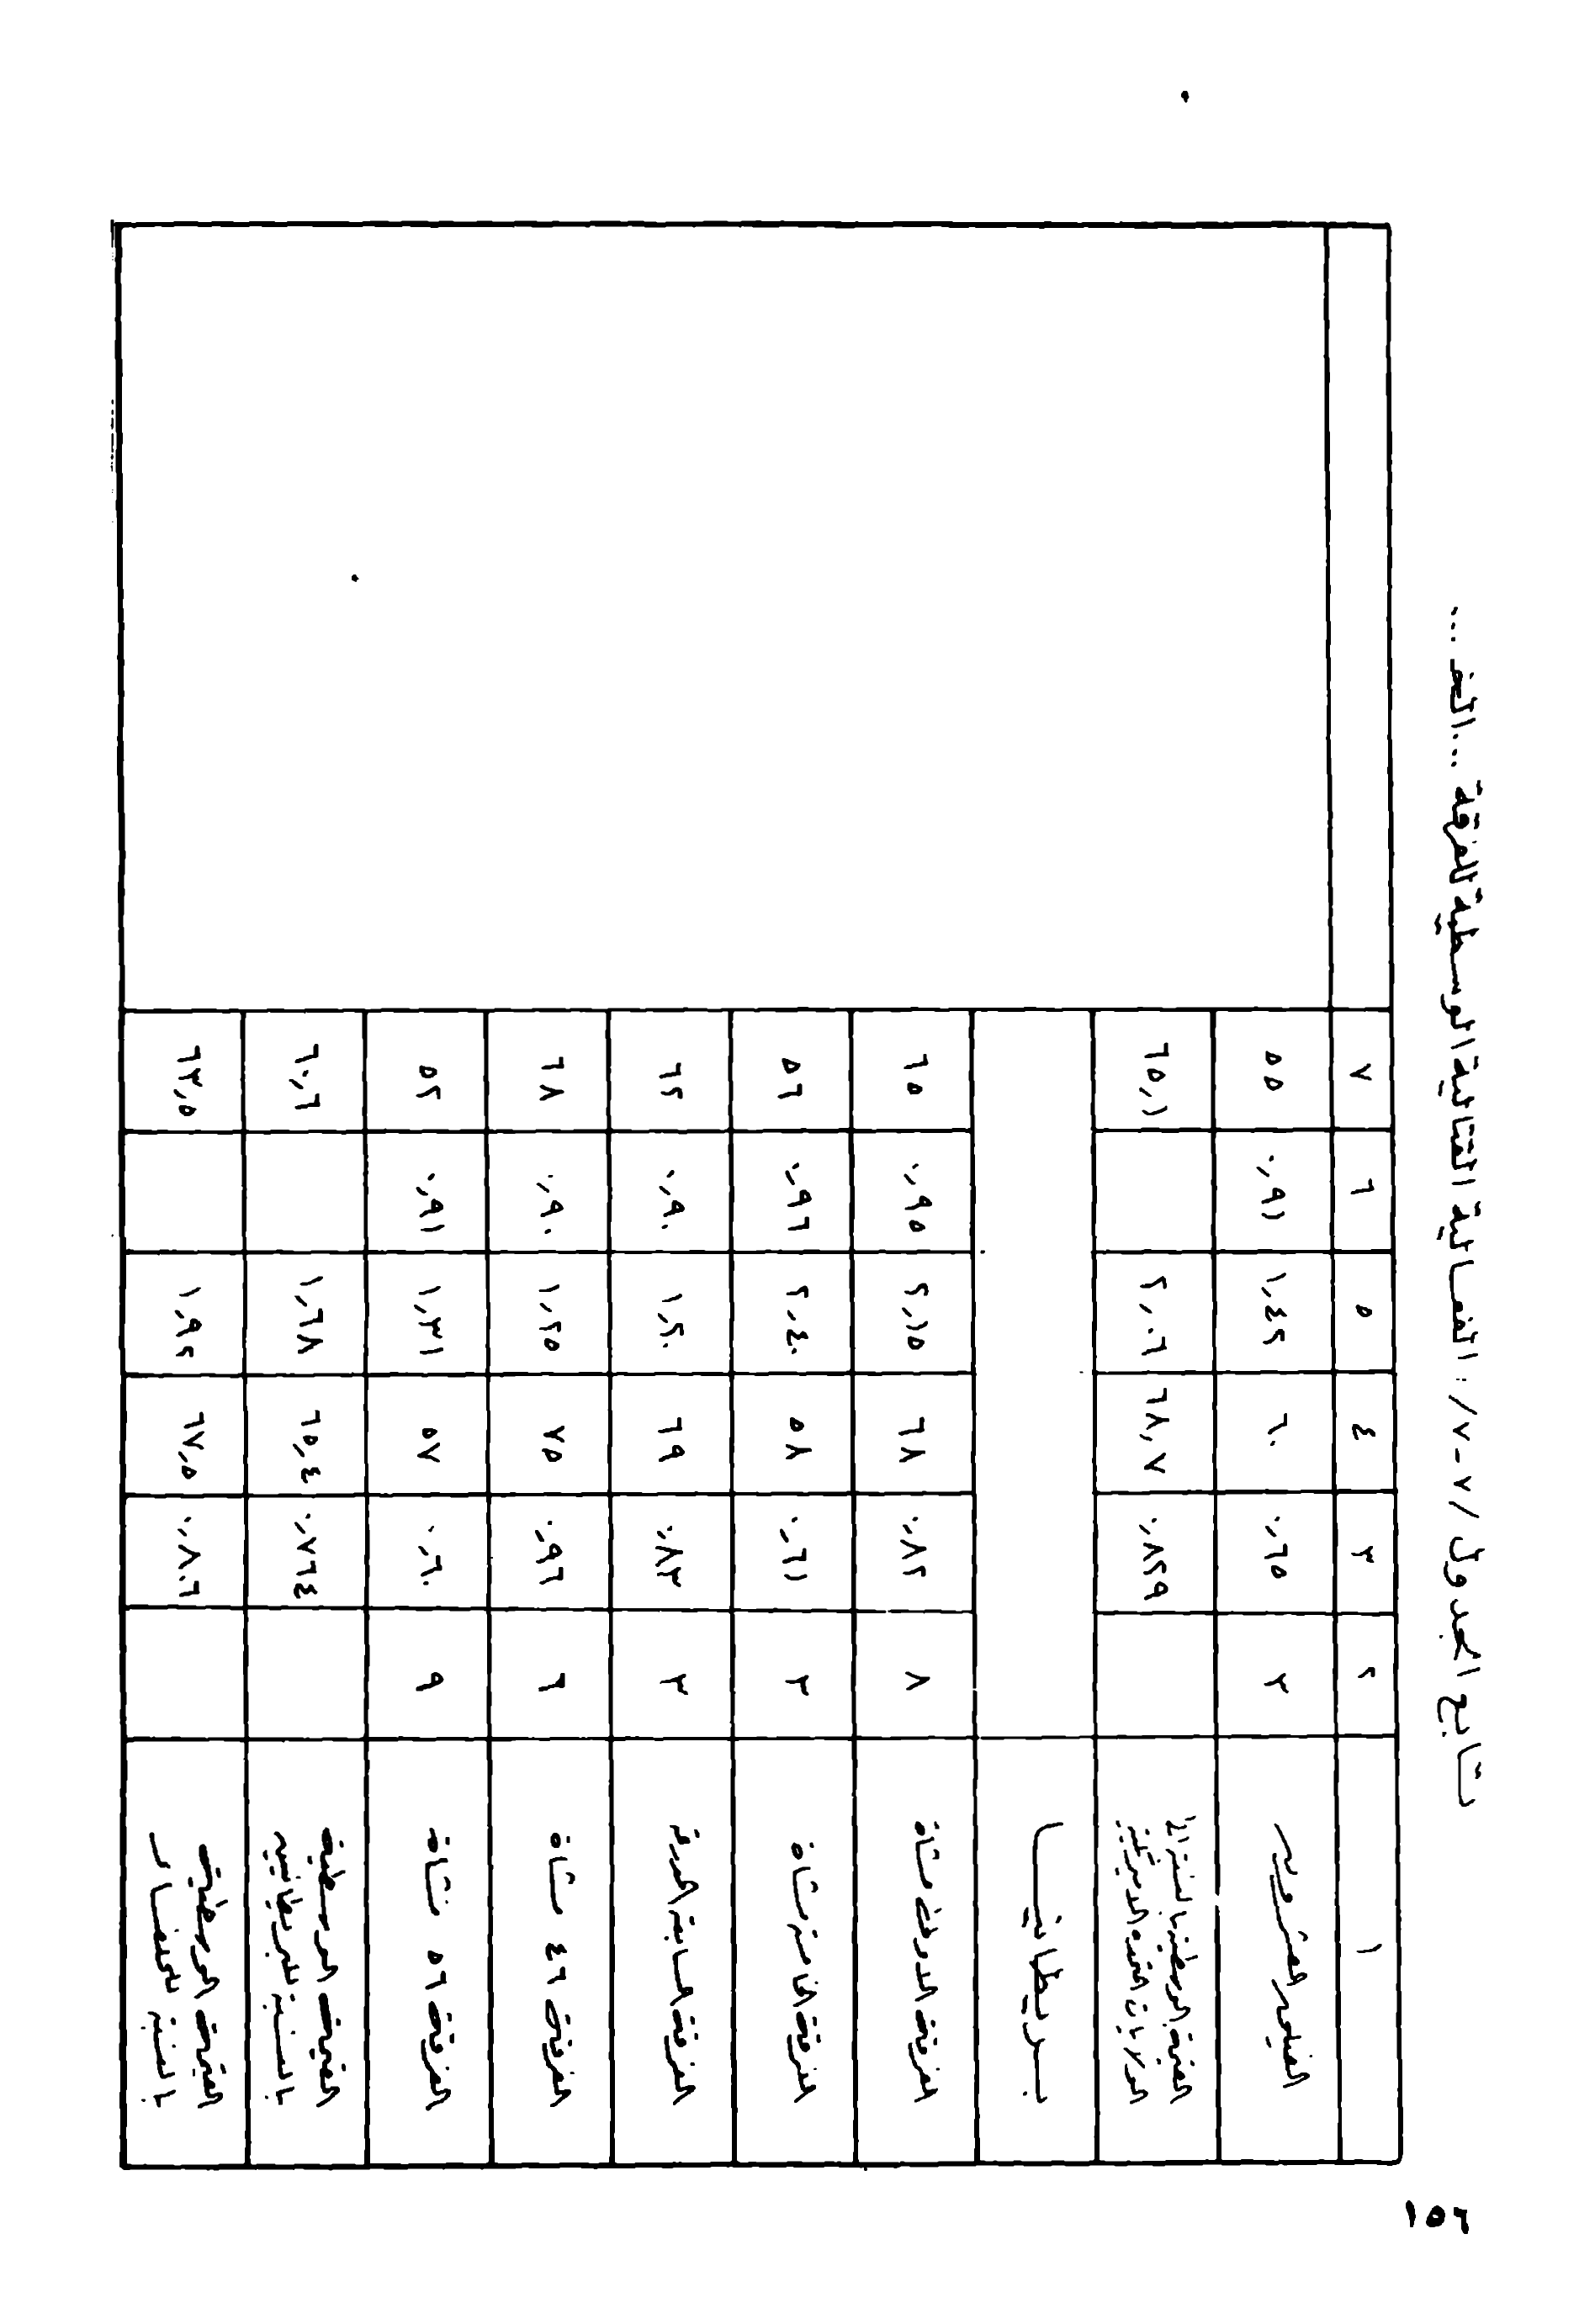 تابع الجدول /٧-٧/: الفعالية القتالية الوسطية للفرقة ...الخ ...
١ ٢ ٣ ٤ ٥ ٦ ٧
الفيلق العشرون ٣ ٠,٦٥ ٦٠ ١,٤٢ ٠,٩١ ٥٥
القيمة الوسطية بالنسبة إلى
الولايات المتحدة الأمريكية ٠,٨٢٩ ٦٨,٧ ٢,٠٦ ٦٥,١
بريطانيا
الفرقة الأولى مشاة ٨ ٠,٨٢ ٦٨ ٢,١٥ ٠,٩٥ ٦٥
الفرقة الخامسة مشاة ٣ ٠,٦١ ٥٨ ٢,٤٠ ٠,٩٦ ٥٦
الفرقة السابعة المدرعة ٣ ٠,٨٣ ٦٩ ١,٢٠ ٠,٩٠ ٦٢
الفرقة ٤٦ مشاة ٦ ٠,٩٦ ٧٥ ١,٢٥ ٠,٩٠ ٦٨
الفرقة ٥٦ مشاة ٩ ٠,٦٠ ٥٧ ١,٣١ ٠,٩١ ٥٢
القيمة الوسطية
بالنسبة للبريطانيين ٠,٧٦٤ ٦٥,٤ ١,٦٨ ٦٠,٦
القيمة الوسطية
بالنسبة للحلفاء ٠,٨٠٦ ٦٧,٥ ١,٩٢ ٦٣,٥
١٥٦